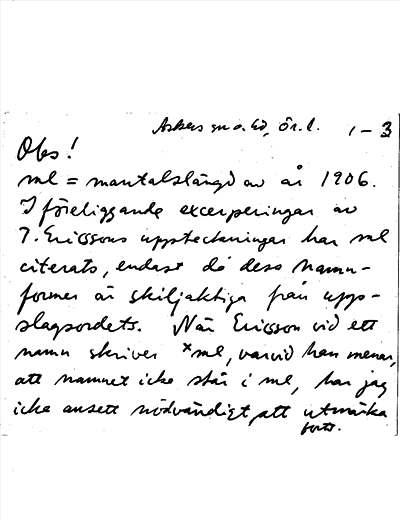 Askers sn o. hd, Ör. l. 1-3
Obs!
ml = mantalslängd av år 1906.
I föreliggande excerperingar av
T. Ericssons uppteckningar har ml
citerats, endast då dess namn-
former är skiljaktiga från upp-
slagsordets. När Ericsson vid ett
namn skriver × ml, varvid han menar,
att namnet icke står i ml, har jag
icke ansett nödvändigt, att utmärka
forts.